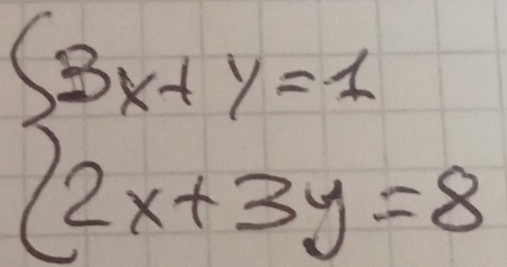 3x+y=1
2x+3y=8